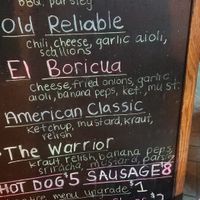 bbq, parsley
Old Reliable
chili, cheese, garlic aioli,
scallions
El Boricua
cheese, fried onions, garlic
aioli, banana peps, ket, must.
American Classic
ketchup, mustard, kraut,
relish
The Warrior
kraut, relish, banana peps
sriracha, mustard, parsley
HOT DOG'S SAUSAGE 8
menu upgrade $1